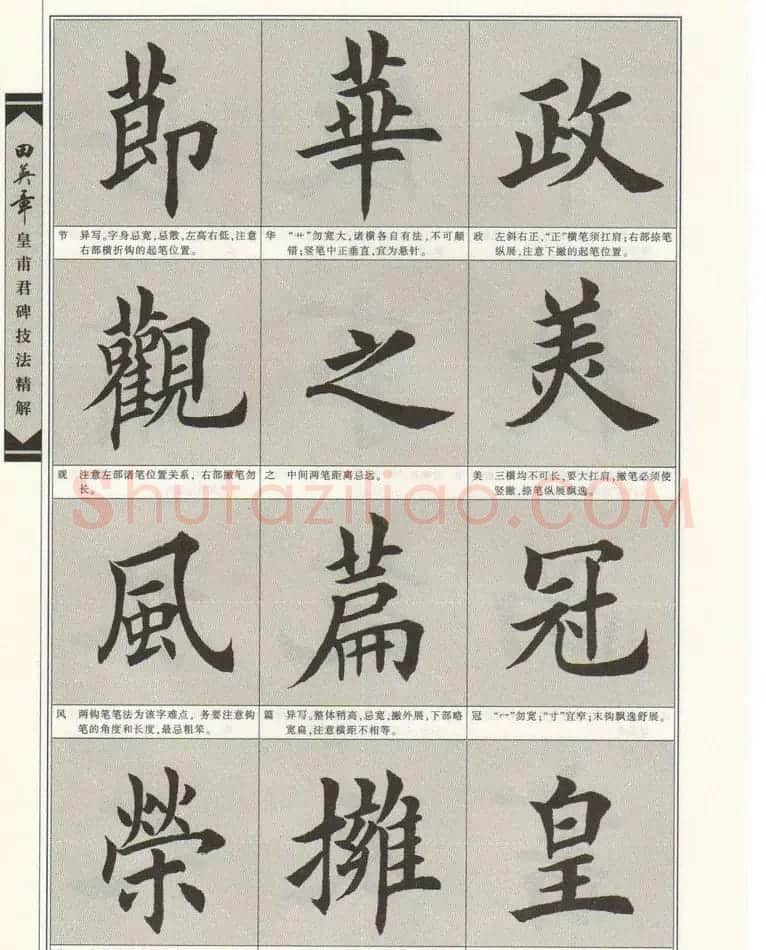 田英章
皇甫君碑技法精解
節 華 政
节 异写。字身忌宽,忌散,左高右低,注意
右部横折钩的起笔位置。
华 “艹”勿宽大,诸横各自有法,不可颠
错;竖笔中正垂直,宜为悬针。
政 左斜右正,“正”横笔须扛肩;右部捺笔
纵展,注意下撇的起笔位置。
觀 之 美
观 注意左部诸笔位置关系,右部撇笔勿
长。
之 中间两笔距离忌远。
美 三横均不可长,要大扛肩,撇笔必须使
竖撇,捺笔纵展飘逸。
Shufaziliao.COM
風 篇 冠
风 两钩笔笔法为该字难点,务要注意钩
笔的角度和长度,最忌粗笨。
篇 异写。整体稍高,忌宽,撇外展,下部略
宽扁,注意横距不相等。
冠 “冖”勿宽;“寸”宜窄;末钩飘逸舒展。
榮 擁 皇